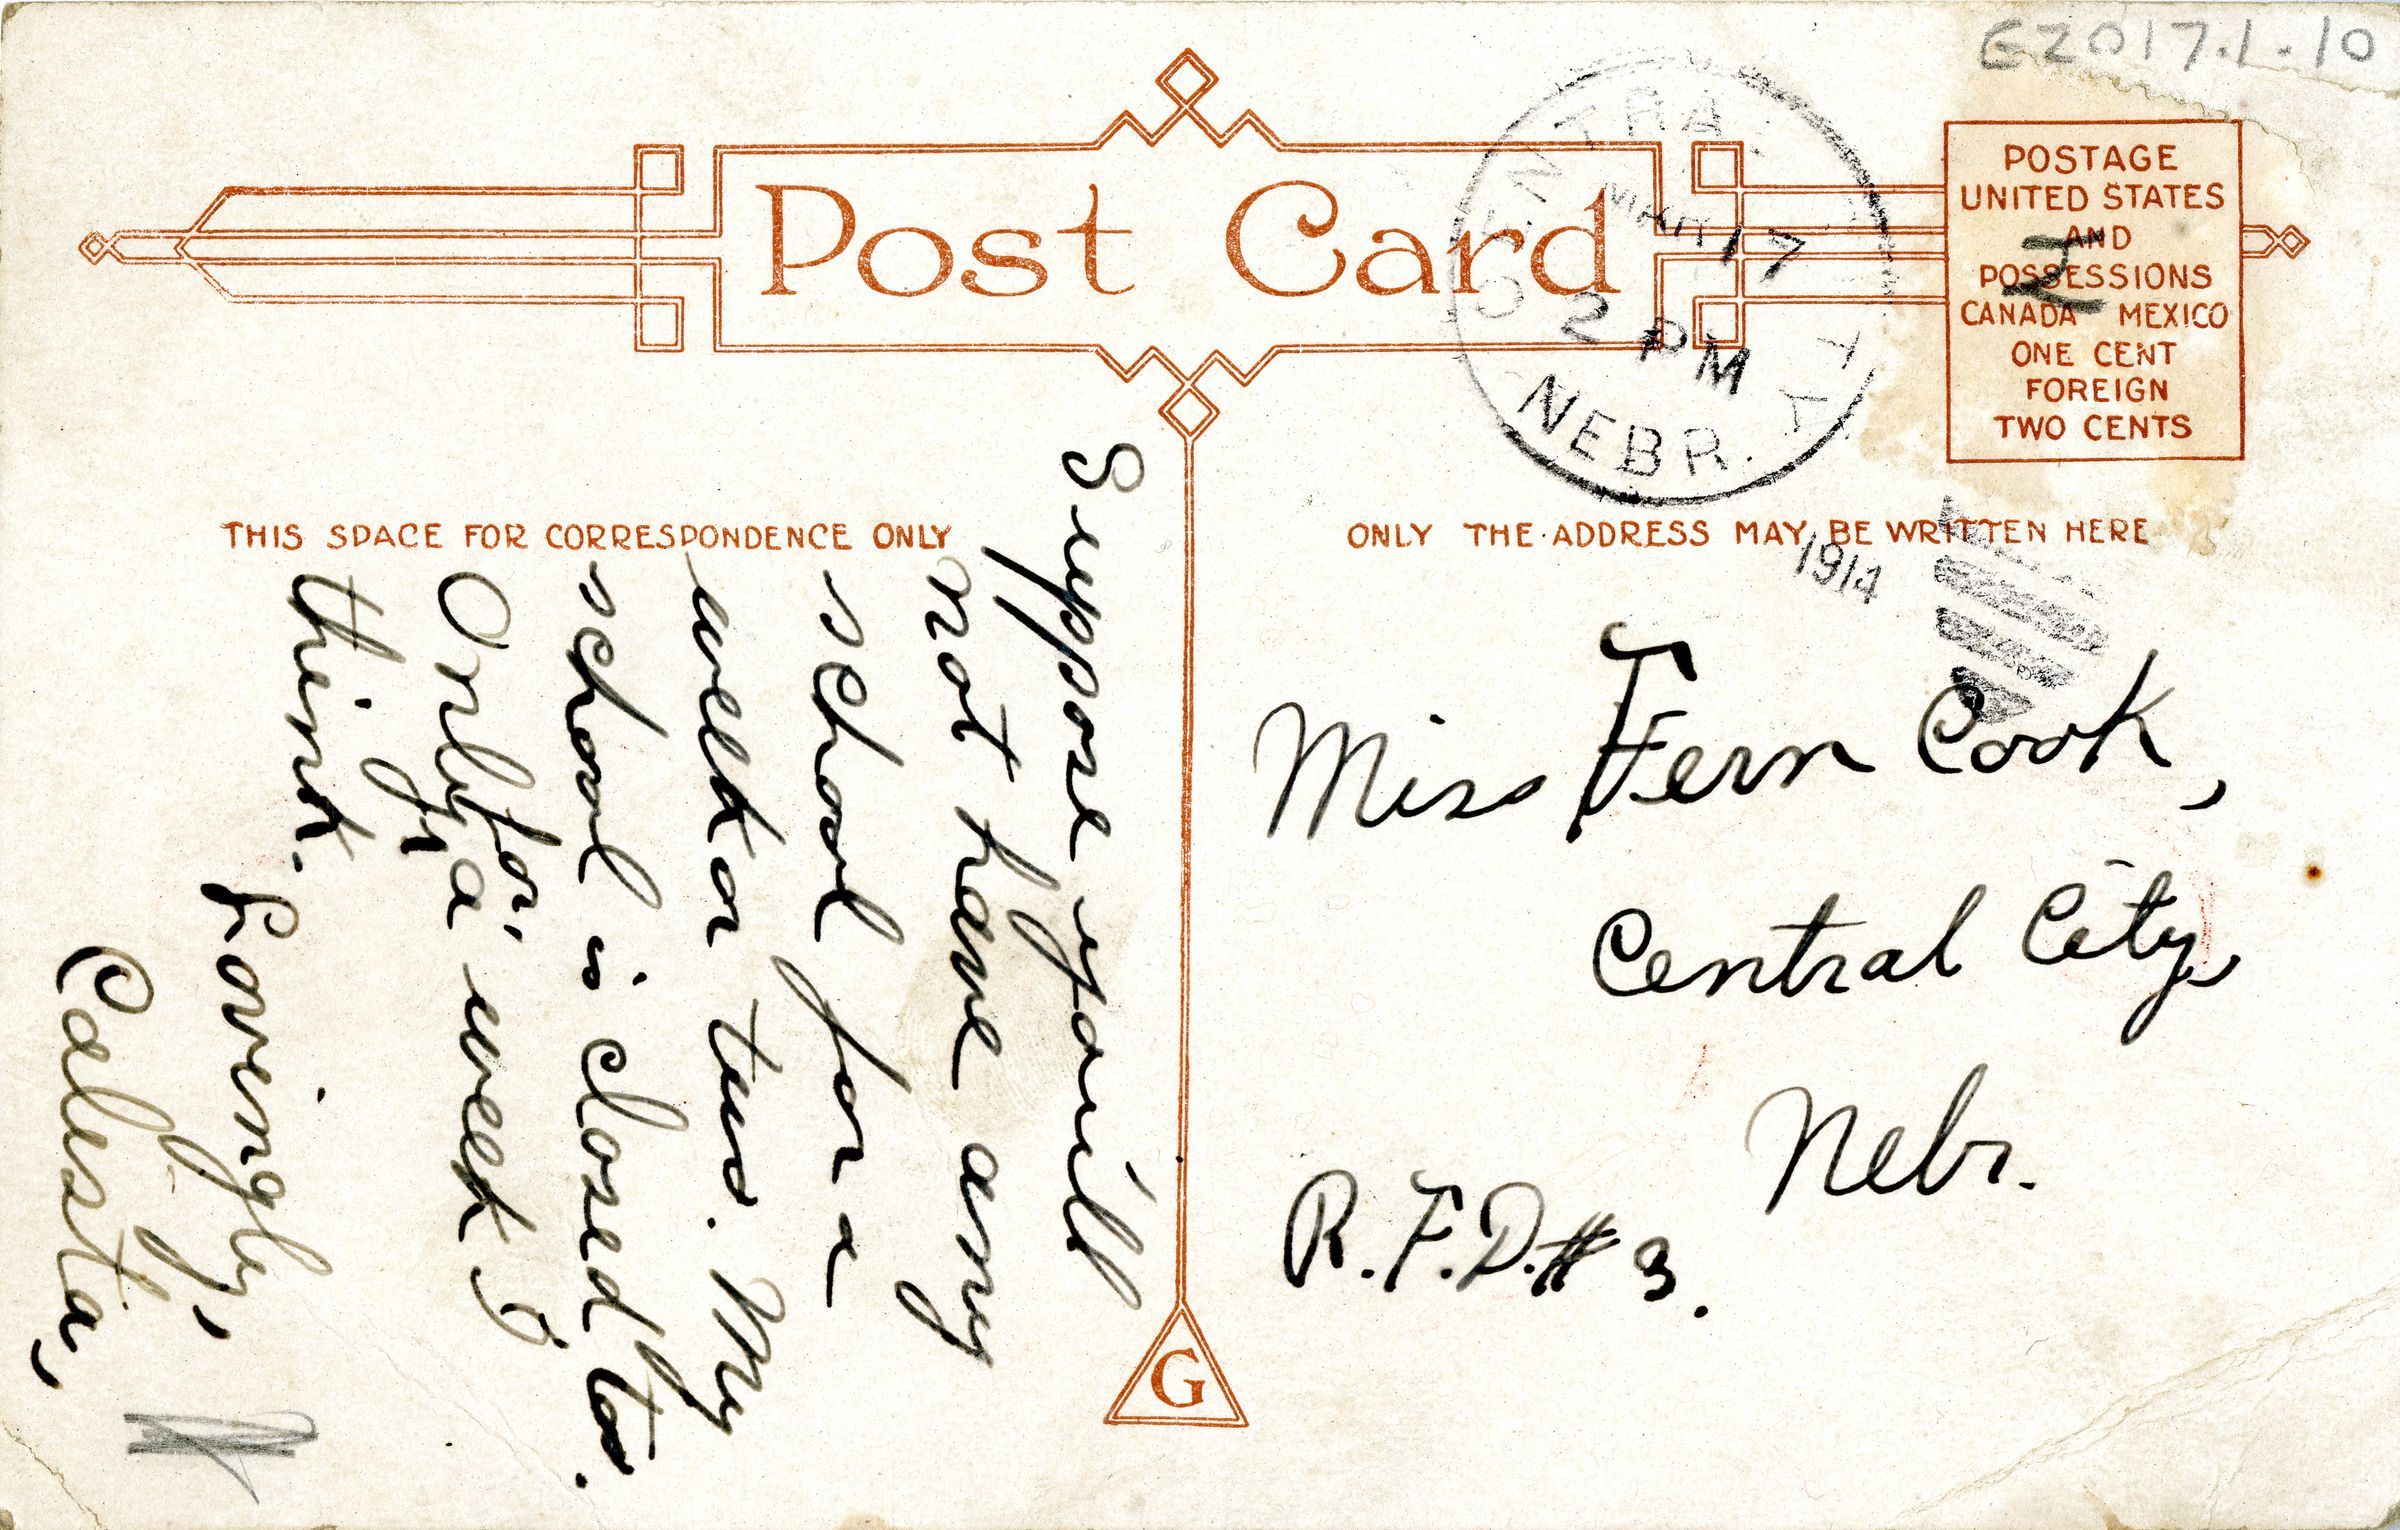 E2017.1.10
Post Card
CENTRAL CITY
MAR 17
2 PM
NEBR.
1914
POSTAGE
UNITED STATES
AND
POSSESSIONS
CANADA MEXICO
ONE CENT
FOREIGN
TWO CENTS
2
THIS SPACE FOR CORRESPONDENCE ONLY
ONLY THE ADDRESS MAY BE WRITTEN HERE
Suppose you'll
not have any
school for a
week or two. My
school is closed to.
Only for a week I
think.
Lovingly,
Calesta,
Miss Fern Cook,
Central City,
Nebr.
R.F.D. # 3.
G